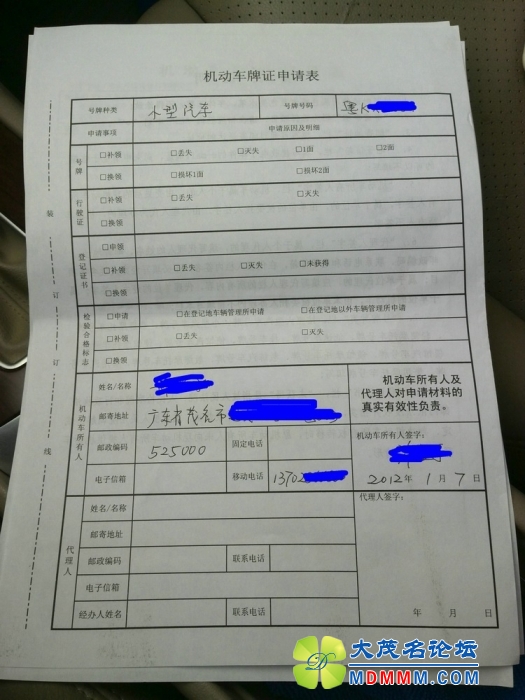 机动车牌证申请表
号牌种类 小型汽车 号牌号码 粤K
申请事项 申请原因及明细
号牌 □补领 □丢失 □灭失 □1面 □2面
□换领 □损坏1面 □损坏2面
行驶证 □补领 □丢失 □灭失
□换领
登记证书 □申领
□补领 □丢失 □灭失 □未获得
□换领
检验合格标志 □申请 □在登记地车辆管理所申请 □在登记地以外车辆管理所申请
□补领 □丢失 □灭失
□换领
机动车所有人 姓名/名称
邮寄地址 广东省茂名市
邮政编码 525000 固定电话
电子信箱 移动电话 13702
机动车所有人及
代理人对申请材料的
真实有效性负责。
机动车所有人签字:
2012年 1月 7日
代理人 姓名/名称
邮寄地址
邮政编码 联系电话
电子信箱
经办人姓名 联系电话
代理人签字:
年 月 日
装 订 订 线
大茂名论坛
MDMMM.COM